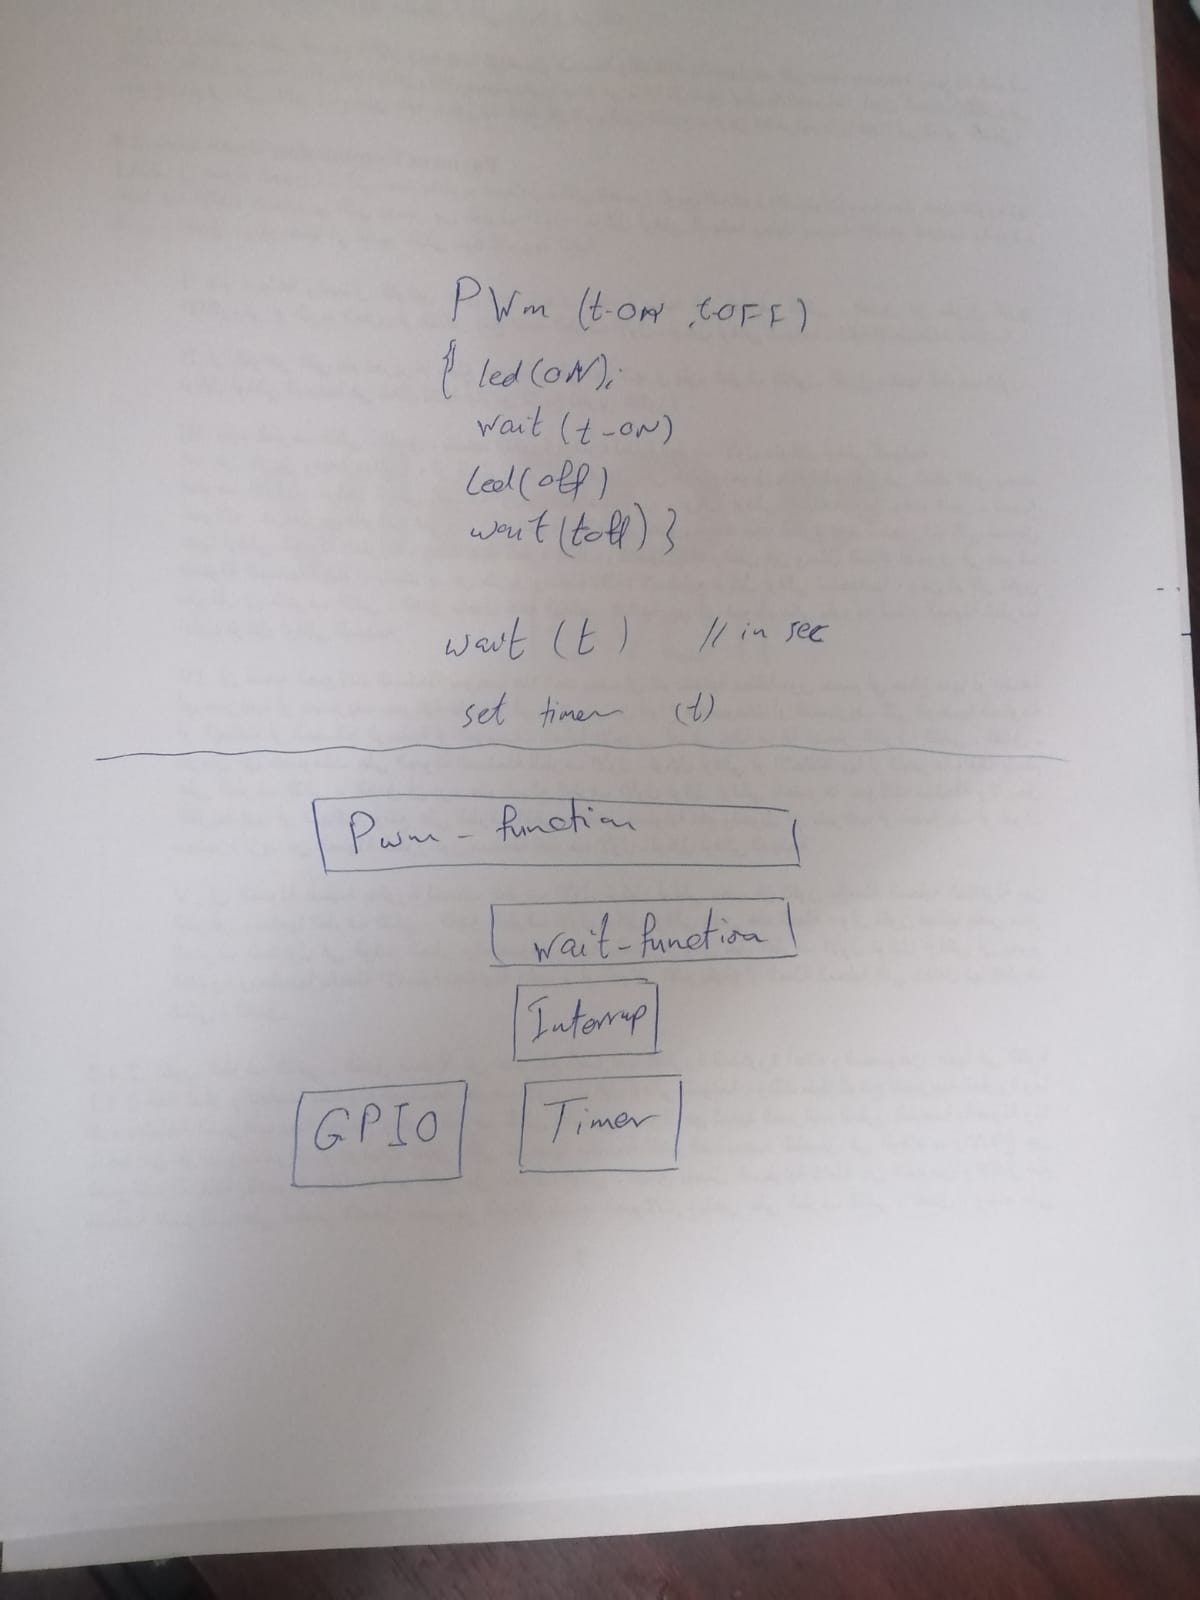 PWm (t-ON, t-OFF)
{ led(ON);
wait (t-ON)
led(off)
wait(toff) }
wait (t) // in sec
set timer (t)
Pwm - function
wait-function
Interrup
GPIO Timer